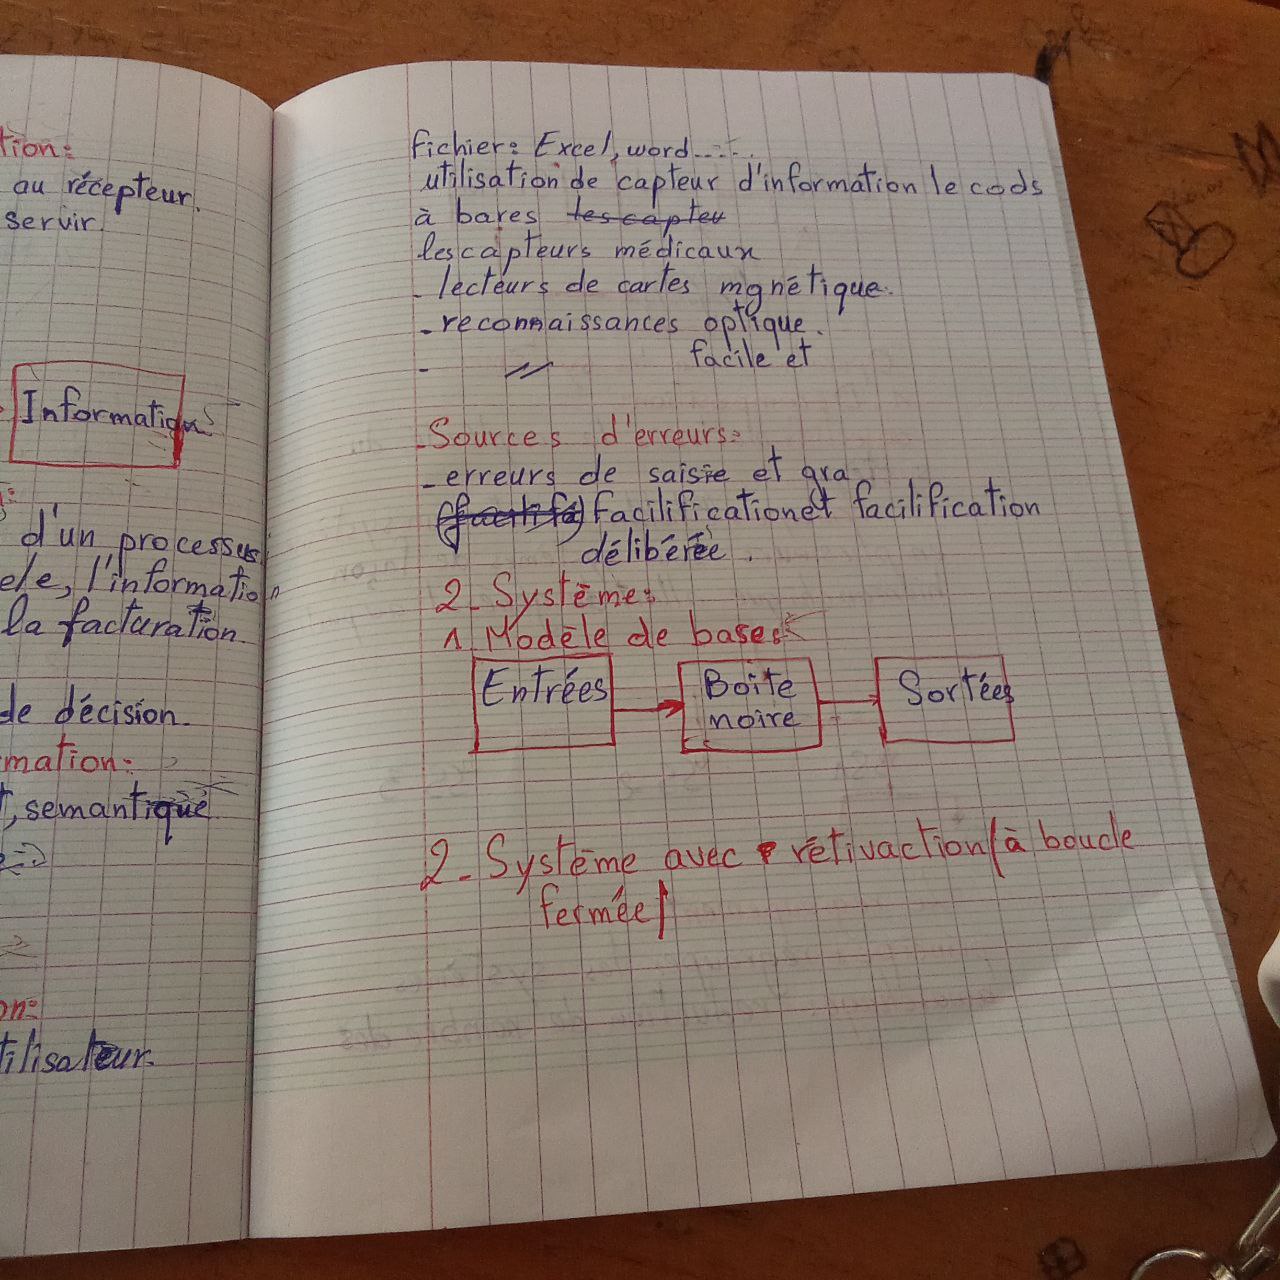 tion:
au récepteur.
servir.
Information
d'un processus
ele, l'information
la facturation
de décision.
mation:
t, semantique
on:
tilisateur.
fichier: Excel, word.....
utilisation de capteur d'information le cods
à bares les capteu
les capteurs médicaux
- lecteurs de cartes mgnétique.
- reconnaissances optique.
- // facile et
- Sources d'erreurs:
- erreurs de saisie et gra
Facilification et facilification
délibérée.
2- Système:
1 Modèle de bases
Entrées
Boîte
noire
Sortées
2- Système avec rétivaction (à boucle
fermée)